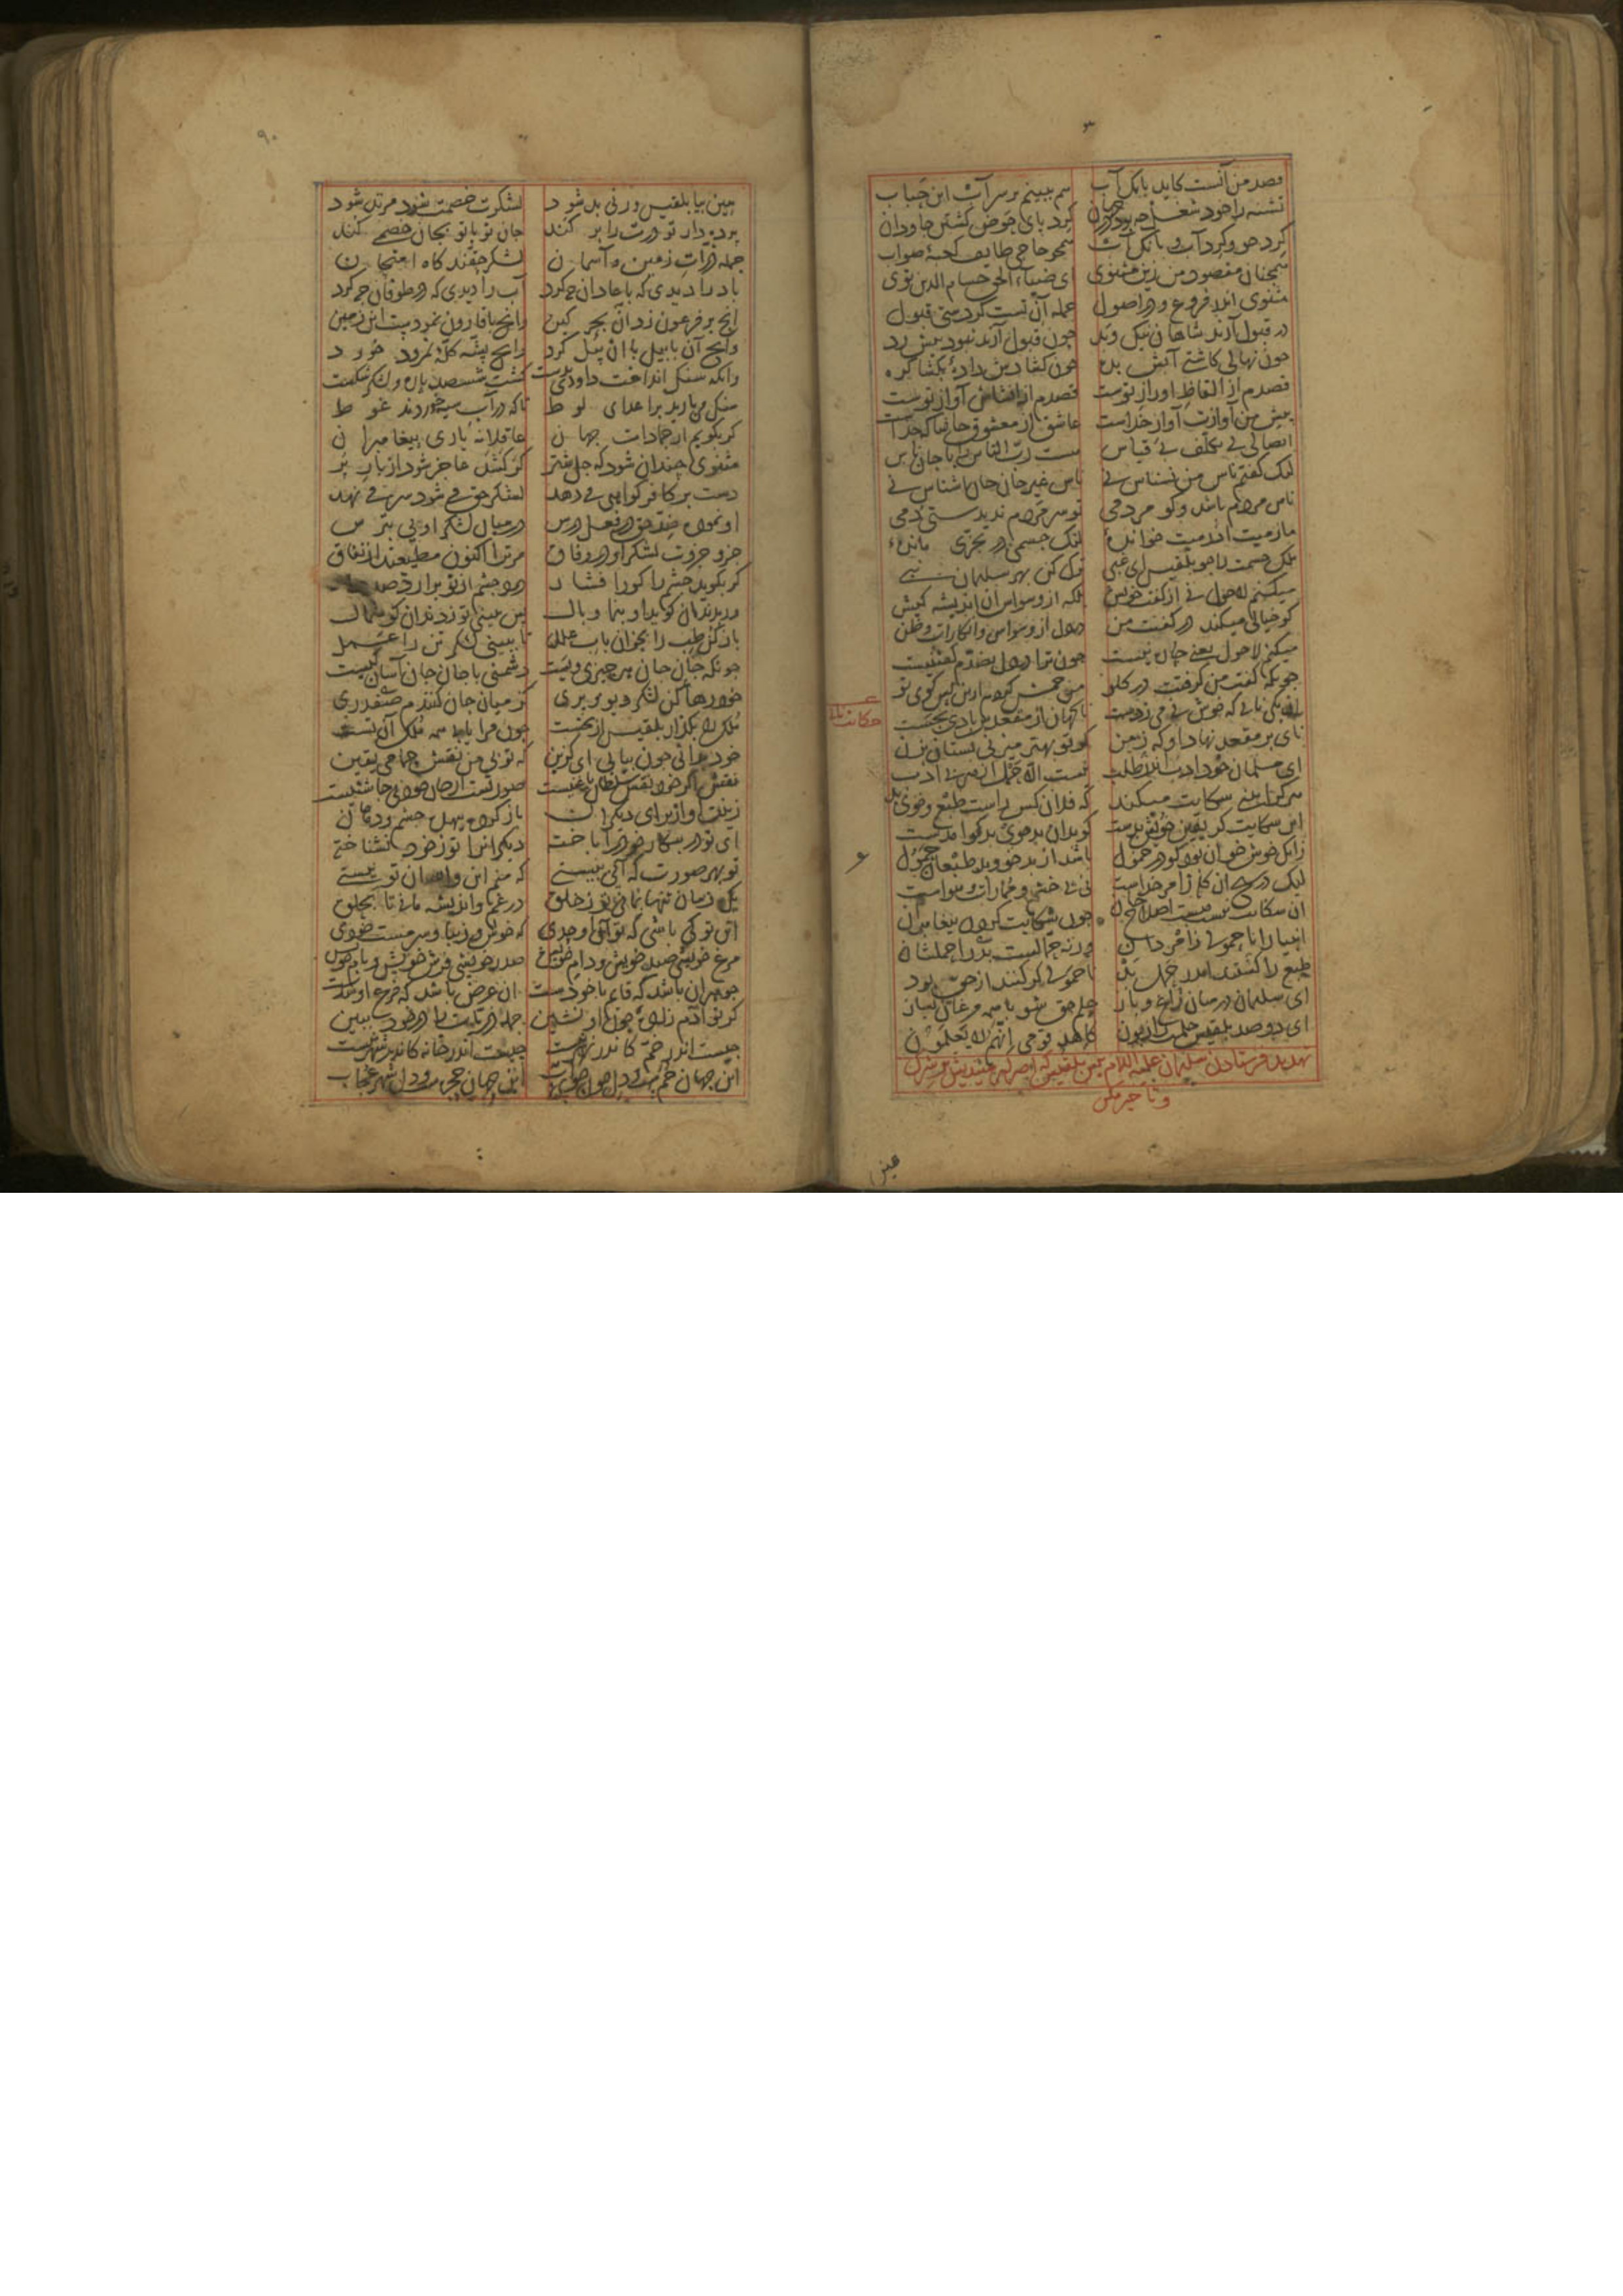 ۳
قصد من آنست کاید بانک آب	هم ببینم بر سر آب این حباب
تشنه را خود شغل چبود در جهان	گرد پای حوض کشتن جاودان
گرد جو و گرد آب و بانک آب	همجو حاجی طایف کعبه صواب
همجنان مقصود من زین مثنوی	ای ضیاء الحق حسام الدین توی
مثنوی اندر فروع و در اصول	جمله آن تست کردستی قبول
در قبول آرند شاهان نیک و بد	چون قبول آرند نبود بیش رد
چون نهالی کاشتی آبش بده	چون کشادش داده بکشا کره
قصدم از الفاظ او راز توست	قصدم از انشایش آواز توست
پیش من آوازت آواز خداست	عاشق از معشوق حاشا که جداست
اتصالی بی تکلف بی قیاس	هست رب الناس را با جان ناس
لیک کفتم ناس من نسناس نی	ناس غیر جان جان اشناس نی
ناس مردم باشد و کو مردمی	تو سر مردم ندیدستی دمی
ما رمیت اذ رمیت خوانده	لیک جسمی در تجزی مانده
ملک جسمت را چو بلقیس ای غبی	ترک کن بهر سلیمان نبی
میکنم لاحول نی از کفت خویش	بلکه از وسواس آن اندیشه کیش
کو خیالی میکند در کفت من	در دل از وسواس و انکارات و ظن
میکنم لاحول یعنی چاره نیست	چون ترا در دل بضدم کفتنیست
چونکه کفت من کرفتت در کلو	من خمش کردم تو آن خود بکو
آن یکی نایی که خوش نی می زدست	ناکهان از مقعدش بادی بجست
حکایت
نای بر مقعد نهاد او که ز من	کر تو بهتر میزنی بستان بزن
ای مسلمان خود ادب اندر طلب	نیست الا حمل از هر بی ادب
هر که را بینی شکایت میکند	که فلان کس راست طبع و خوی بد
این شکایت کر یقین خویش بدست	کو بدان بدخوی بدکو آمدست
زانک خوش خو آن بود کو در خمول	باشد از بدخو و بدطبعان حمول
لیک در شیخ آن کله ز امر خداست	نی پی خشم و ممارات و هواست
آن شکایت نیست هست اصلاح جان	چون شکایت کردن پیغامبران
انبیا را ناحمولی ز امر دان	ورنه حمالست بد را حلمشان
طبع را کشتند اندر حمل بد	ناحمولی کر کنند از حق بود
ای سلیمان در میان زاغ و باز	حلم حق شو با همه مرغان بساز
ای دو صد بلقیس حلمت را زبون	کاهد قومی انهم لا یعلمون
تهدید فرستادن سلیمان علیه السلام پیش بلقیس که اصرار میندیش بر شرک
و تاخیر مکن
هین
۹۰
هین بیا بلقیس ورنی بد شود	لشکرت خصمت شود مرتد شود
پرده دار تو درت را بر کند	جان تو با تو بجان خصمی کند
جمله ذرات زمین و آسمان	لشکر حقند کاه امتحان
باد را دیدی که با عادان چه کرد	آب را دیدی که در طوفان چه کرد
آنچ بر فرعون زد آن بحر کین	وانچ با قارون نمودست این زمین
وانچ آن بابیل با آن پیل کرد	وانچ پشه کله نمرود خورد
وانکه سنک انداخت داودی بدست	کشت شسصد پاره و لشکر شکست
سنک می بارید بر اعدای لوط	تا که در آب سیه خوردند غوط
کر بکویم از جمادات جهان	عاقلانه یاری پیغامبران
مثنوی چندان شود که چل شتر	کر کشد عاجز شود از بار پر
دست بر کافر کواهی می دهد	لشکر حق می شود سر می نهد
ای نموده ضد حق در فعل درس	در میان لشکر اویی بترس
جزو جزوت لشکر او در وفاق	مر ترا اکنون مطیعند از نفاق
کر بکوید چشم را کورا فشار	درد چشم از تو برآرد صد
ور بدندان کوید او بنما وبال	پس ببینی تو ز دندان کوشمال
باز کن طب را بخوان باب العلل	تا ببینی لشکر تن را عمل
چونکه جان جان هر چیزی ویست	دشمنی با جان جان آسان کیست
خود رها کن لشکر دیو و پری	کز میان جان کنندم صفدری
ملک را بکذار بلقیس از نخست	چون مرا یابی همه ملک آن تست
خود بدانی چون بیایی ای کزین	که تو بی من نقش حمامی یقین
نقش اکر خود نقش سلطان یا غنیست	صورتست از جان خود بی چاشنیست
زینت او از برای دیکران	باز کرده بیهده چشم و دهان
ای تو در پیکار خود را باخته	دیکران را تو ز خود نشناخته
تو بهر صورت که آیی بیستی	که منم این والله آن تو نیستی
یک زمان تنها بمانی تو ز خلق	در غم و اندیشه مانی تا بحلق
این تو کی باشی که تو آن اوحدی	که خوش و زیبا و سرمست خودی
مرغ خویشی صید خویشی و دام خویش	صدر خویشی فرش خویشی و بام خویش
جوهر آن باشد که قایم با خودست	آن عرض باشد که فرع او شدست
کر تو آدم زاده چون او نشین	جمله ذریات را در خود ببین
چیست اندر خم که اندر نهر نیست	چیست اندر خانه کاندر شهر نیست
این جهان خمست و دل چون جوی آب	این جهان حجره‌ست و دل شهر عجاب